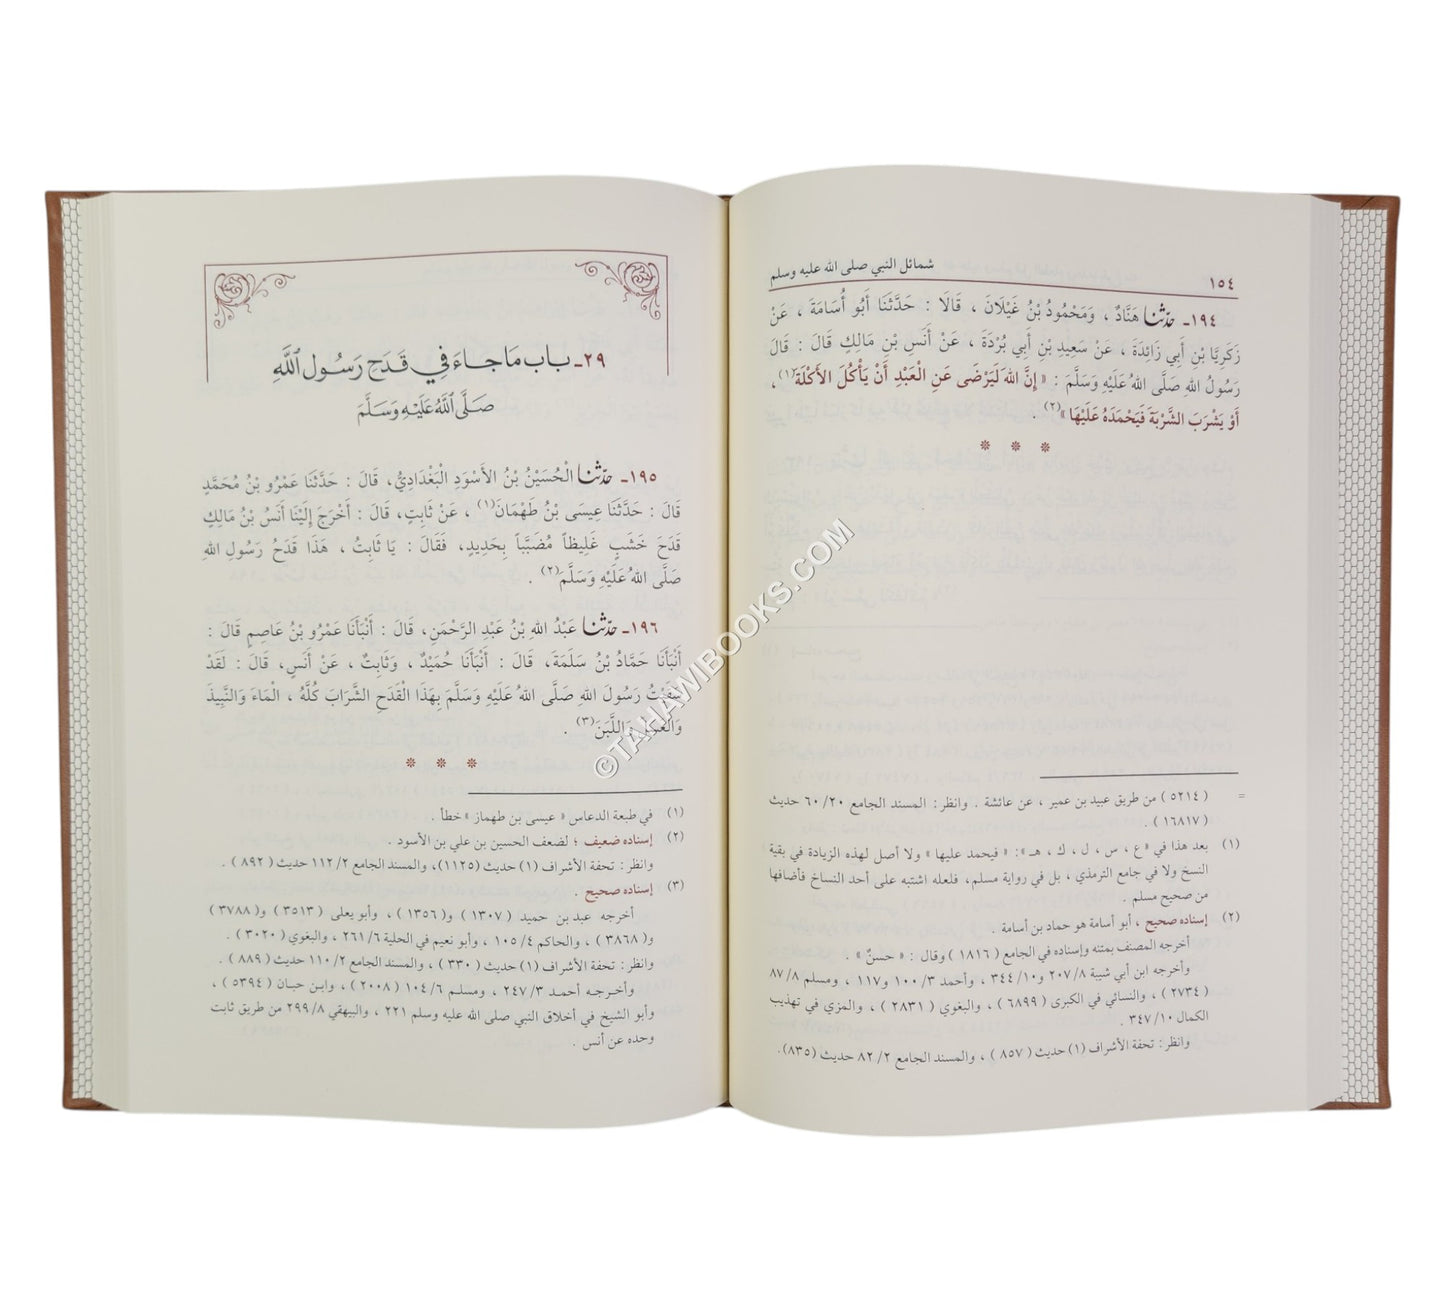 ١٥٤ شمائل النبي صلى الله عليه وسلم
١٩٤ـ حدّثنا هَنَّادٌ ، وَمَحْمُودُ بْنُ غَيْلَانَ ، قَالَا : حَدَّثَنَا أَبُو أُسَامَةَ ، عَنْ
زَكَرِيَّا بْنِ أَبِي زَائِدَةَ ، عَنْ سَعِيدِ بْنِ أَبِي بُرْدَةَ ، عَنْ أَنَسِ بْنِ مَالِكٍ قَالَ : قَالَ
رَسُولُ اللهِ صَلَّى اللهُ عَلَيْهِ وَسَلَّمَ : « إِنَّ اللهَ لَيَرْضَى عَنِ الْعَبْدِ أَنْ يَأْكُلَ الأَكْلَةَ(١) ،
أَوْ يَشْرَبَ الشَّرْبَةَ فَيَحْمَدَهُ عَلَيْهَا »(٢) .
= ( ٥٢١٤ ) من طريق عبيد بن عمير ، عن عائشة . وانظر : المسند الجامع ٢٠/ ٦٠ حديث
( ١٦٨١٧ ) .
(١) بعد هذا في « ع ، س ، ل ، ك ، هـ »: « فيحمد عليها » ولا أصل لهذه الزيادة في بقية
النسخ ولا في جامع الترمذي ، بل في رواية مسلم، فلعله اشتبه على أحد النساخ فأضافها
من صحيح مسلم .
(٢) إسناده صحيح ، أبو أسامة هو حماد بن أسامة .
أخرجه المصنف بمتنه وإسناده في الجامع ( ١٨١٦ ) وقال : « حسنٌ » .
وأخرجه ابن أبي شيبة ٨/ ٢٠٧ و١٠/ ٣٤٤ ، وأحمد ٣/ ١٠٠ و١١٧ ، ومسلم ٨/ ٨٧
( ٢٧٣٤ ) ، والنسائي في الكبرى ( ٦٨٩٩ ) ، والبغوي ( ٢٨٣١ ) ، والمزي في تهذيب
الكمال ١٠/ ٣٤٧ .
وانظر : تحفة الأشراف (١) حديث ( ٨٥٧ ) ، والمسند الجامع ٢/ ٨٢ حديث (٨٣٥).
٢٩ـ باب ما جاء في قدح رسول الله
صَلَّى اللَّهُ عَلَيْهِ وَسَلَّمَ
١٩٥ـ حدّثنا الْحُسَيْنُ بْنُ الأَسْوَدِ الْبَغْدَادِيُّ، قَالَ : حَدَّثَنَا عَمْرُو بْنُ مُحَمَّدٍ
قَالَ : حَدَّثَنَا عِيسَى بْنُ طَهْمَانَ(١) ، عَنْ ثَابِتٍ، قَالَ : أَخْرَجَ إِلَيْنَا أَنَسُ بْنُ مَالِكٍ
قَدَحَ خَشَبٍ غَلِيظاً مُضَبَّباً بِحَدِيدٍ، فَقَالَ : يَا ثَابِتُ ، هَذَا قَدَحُ رَسُولِ اللهِ
صَلَّى اللهُ عَلَيْهِ وَسَلَّمَ(٢) .
١٩٦ـ حدّثنا عَبْدُ اللهِ بْنُ عَبْدِ الرَّحْمَنِ، قَالَ : أَنْبَأَنَا عَمْرُو بْنُ عَاصِمٍ قَالَ :
أَنْبَأَنَا حَمَّادُ بْنُ سَلَمَةَ، قَالَ : أَنْبَأَنَا حُمَيْدٌ، وَثَابِتٌ ، عَنْ أَنَسٍ، قَالَ : لَقَدْ
سَقَيْتُ رَسُولَ اللهِ صَلَّى اللهُ عَلَيْهِ وَسَلَّمَ بِهَذَا الْقَدَحِ الشَّرَابَ كُلَّهُ ، الْمَاءَ وَالنَّبِيذَ
وَالْعَسَلَ وَاللَّبَنَ(٣) .
(١) في طبعة الدعاس « عيسى بن طهماز » خطأ .
(٢) إسناده ضعيف ؛ لضعف الحسين بن علي بن الأسود .
وانظر : تحفة الأشراف (١) حديث (١١٢٥)، والمسند الجامع ٢/ ١١٢ حديث ( ٨٩٢ ) .
(٣) إسناده صحيح .
أخرجه عبد بن حميد ( ١٣٠٧ ) و( ١٣٥٦ ) ، وأبو يعلى ( ٣٥١٣ ) و( ٣٧٨٨ )
و( ٣٨٦٨ ) ، والحاكم ٤/ ١٠٥ ، وأبو نعيم في الحلية ٦/ ٢٦١ ، والبغوي ( ٣٠٢٠ ) .
وانظر : تحفة الأشراف (١) حديث ( ٣٣٠ ) ، والمسند الجامع ٢/ ١١٠ حديث ( ٨٨٩ ) .
وأخرجه أحمد ٣/ ٢٤٧ ، ومسلم ٦/ ١٠٤ ( ٢٠٠٨ ) ، وابن حبان ( ٥٣٩٤ ) ،
وأبو الشيخ في أخلاق النبي صلى الله عليه وسلم ٢٢١ ، والبيهقي ٨/ ٢٩٩ من طريق ثابت
وحده عن أنس .
©TAHAMIBOOKS.COM